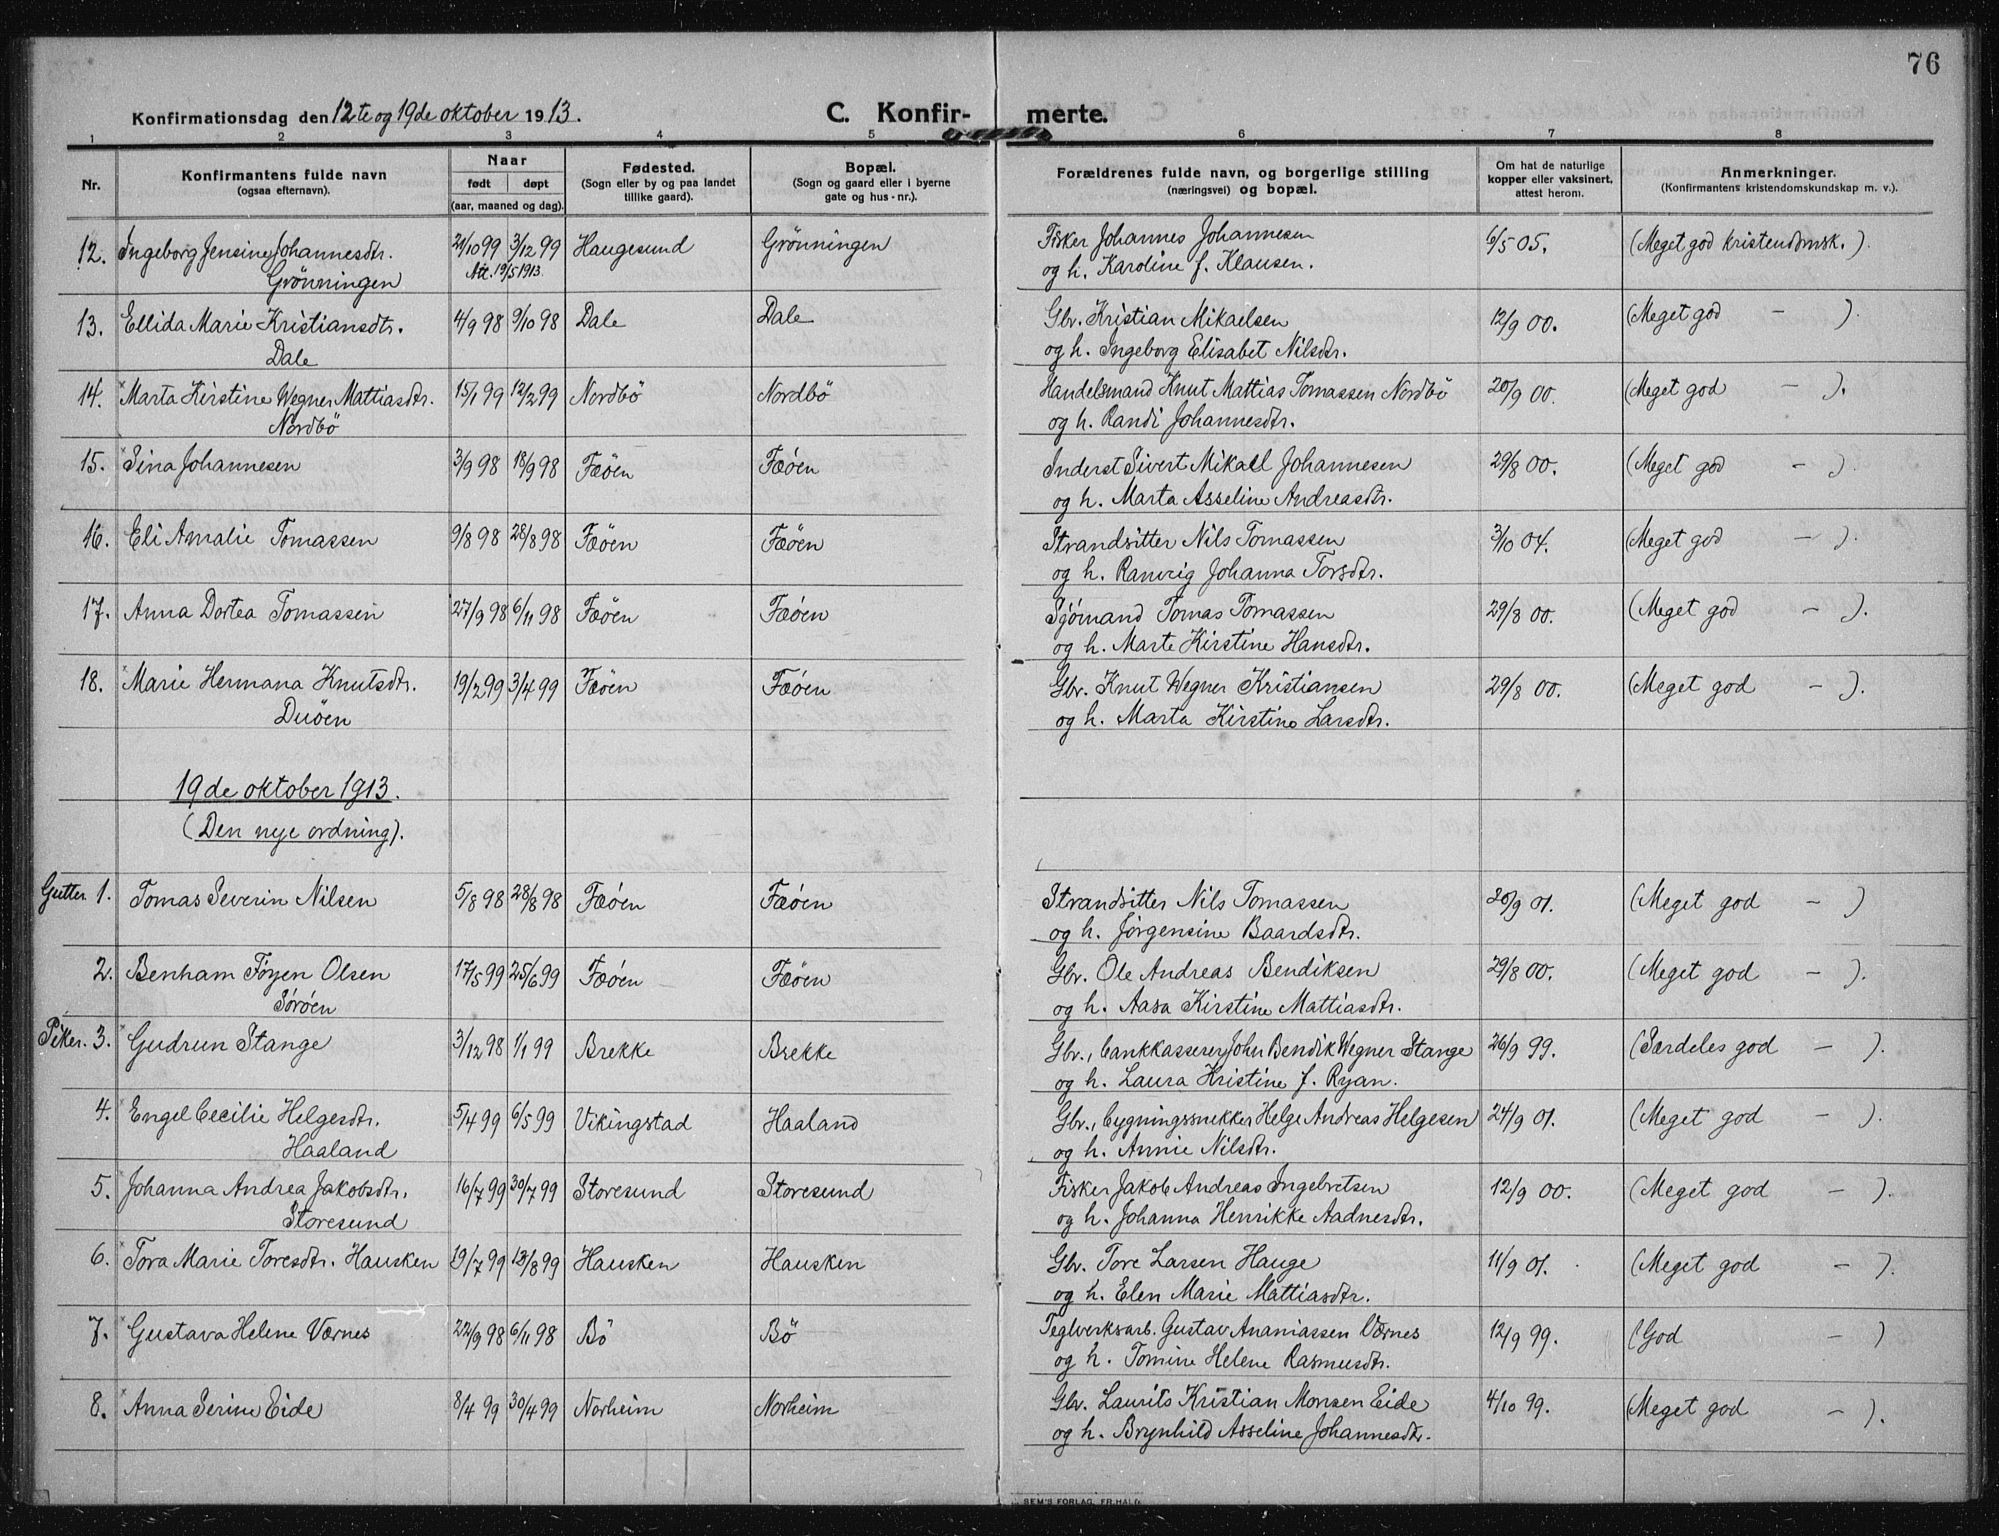 76
Konfirmationsdag den 12te og 19de oktober 1913.
C. Konfirmerte.
1 2 3 4 5 6 7 8
Nr.
Konfirmantens fulde navn
(ogsaa efternavn).
Naar
født døpt
(aar, maaned og dag).
Fødested.
(Sogn eller by og paa landet
tillike gaard).
Bopæl.
(Sogn og gaard eller i byerne
gate og hus-nr.).
Forældrenes fulde navn, og borgerlige stilling
(næringsvei) og bopæl.
Om hat de naturlige
kopper eller vaksinert,
attest herom.
Anmerkninger.
(Konfirmantens kristendomskundskap m. v.).
12. Ingeborg Jensine Johannesdtr. 21/10 99 3/12 99 Haugesund Grönningen Fisker Johannes Johannesen 6/5 05. (Meget god kristendomsk.).
Grönningen Att. 19/5 1913. og h. Karoline f. Klausen.
13. Ellida Marie Kristiansdtr. 4/9 98 9/10 98 Dale Dale Gbr. Kristian Mikaelsen 12/9 00. (Meget god — ).
Dale og h. Ingeborg Elisabet Nilsdtr.
14. Marta Kirstine Wegner Mattiasdtr. 15/1 99 12/2 99 Nordbö Nordbö Handelsmand Knut Mattias Tomassen Nordbö 20/9 00. (Meget god — ).
Nordbö og h. Randi Johannesdtr.
15. Sina Johannesen 3/9 98 18/9 98 Fæöen Fæöen Inderst Sivert Mikael Johannesen 29/8 00. (Meget god — )
og h. Marta Asseline Andreasdtr.
16. Eli Amalie Tomassen 9/8 98 28/8 98 Fæöen Fæöen Strandsitter Nils Tomassen 3/10 04. (Meget god — ).
og h. Ranveig Johanna Torsdtr.
17. Anna Dortea Tomassen 27/9 98 6/11 98 Fæöen Fæöen Sjömand Tomas Tomassen 29/8 00. (Meget god — ).
og h. Marte Kirstine Hansdtr.
18. Marie Hermana Knutsdtr. 19/2 99 3/4 99 Fæöen Fæöen Gbr. Knut Wegner Kristiansen 29/8 00. (Meget god — ).
Duöen og h. Marta Kirstine Larsdtr.
19de oktober 1913.
(Den nye ordning).
Gutter 1. Tomas Severin Nilsen 5/8 98 28/8 98 Fæöen Fæöen Strandsitter Nils Tomassen 20/9 01. (Meget god — )
og h. Jörgensine Baardsdtr.
2. Benham Föyen Olsen 17/5 99 25/6 99 Fæöen Fæöen Gbr. Ole Andreas Bendiksen 29/8 00. (Meget god — ).
Söröen og h. Aasa Kirstine Mattiasdtr.
Piker. 3. Gudrun Stange 3/12 98 1/1 99 Brekke Brekke Gbr., bankkasserer John Bendik Wegner Stange 26/9 99. (Særdeles god — ).
og h. Laura Kristine f. Ryan.
4. Engel Cecilie Helgesdtr. 5/4 99 6/5 99 Vikingstad Haaland Gbr., bygningssnekker Helge Andreas Helgesen 24/9 01. (Meget god — ).
Haaland og h. Annie Nilsdtr.
5. Johanna Andrea Jakobsdtr. 16/7 99 30/7 99 Storesund Storesund Fisker Jakob Andreas Ingebretsen 12/9 00. (Meget god — ).
Storesund og h. Johanna Henrikke Aadnesdtr.
6. Tora Marie Toresdtr. Hausken 19/7 99 13/8 99 Hausken Hausken Gbr. Tore Larsen Hauge 11/9 01. (Meget god — ).
og h. Elen Marie Mattiasdtr.
7. Gustava Helene Værnes 22/9 98 6/11 98 Bö Bö Teglverksarb. Gustav Ananiassen Værnes 12/9 99. (God — )
og h. Tomine Helene Rasmusdtr.
8. Anna Serine Eide 8/4 99 30/4 99 Norheim Norheim Gbr. Laurits Kristian Monsen Eide 4/10 99. (Meget god — ).
og h. Brynhild Asseline Johannesdtr.
SEM'S FORLAG, FR.HALD.